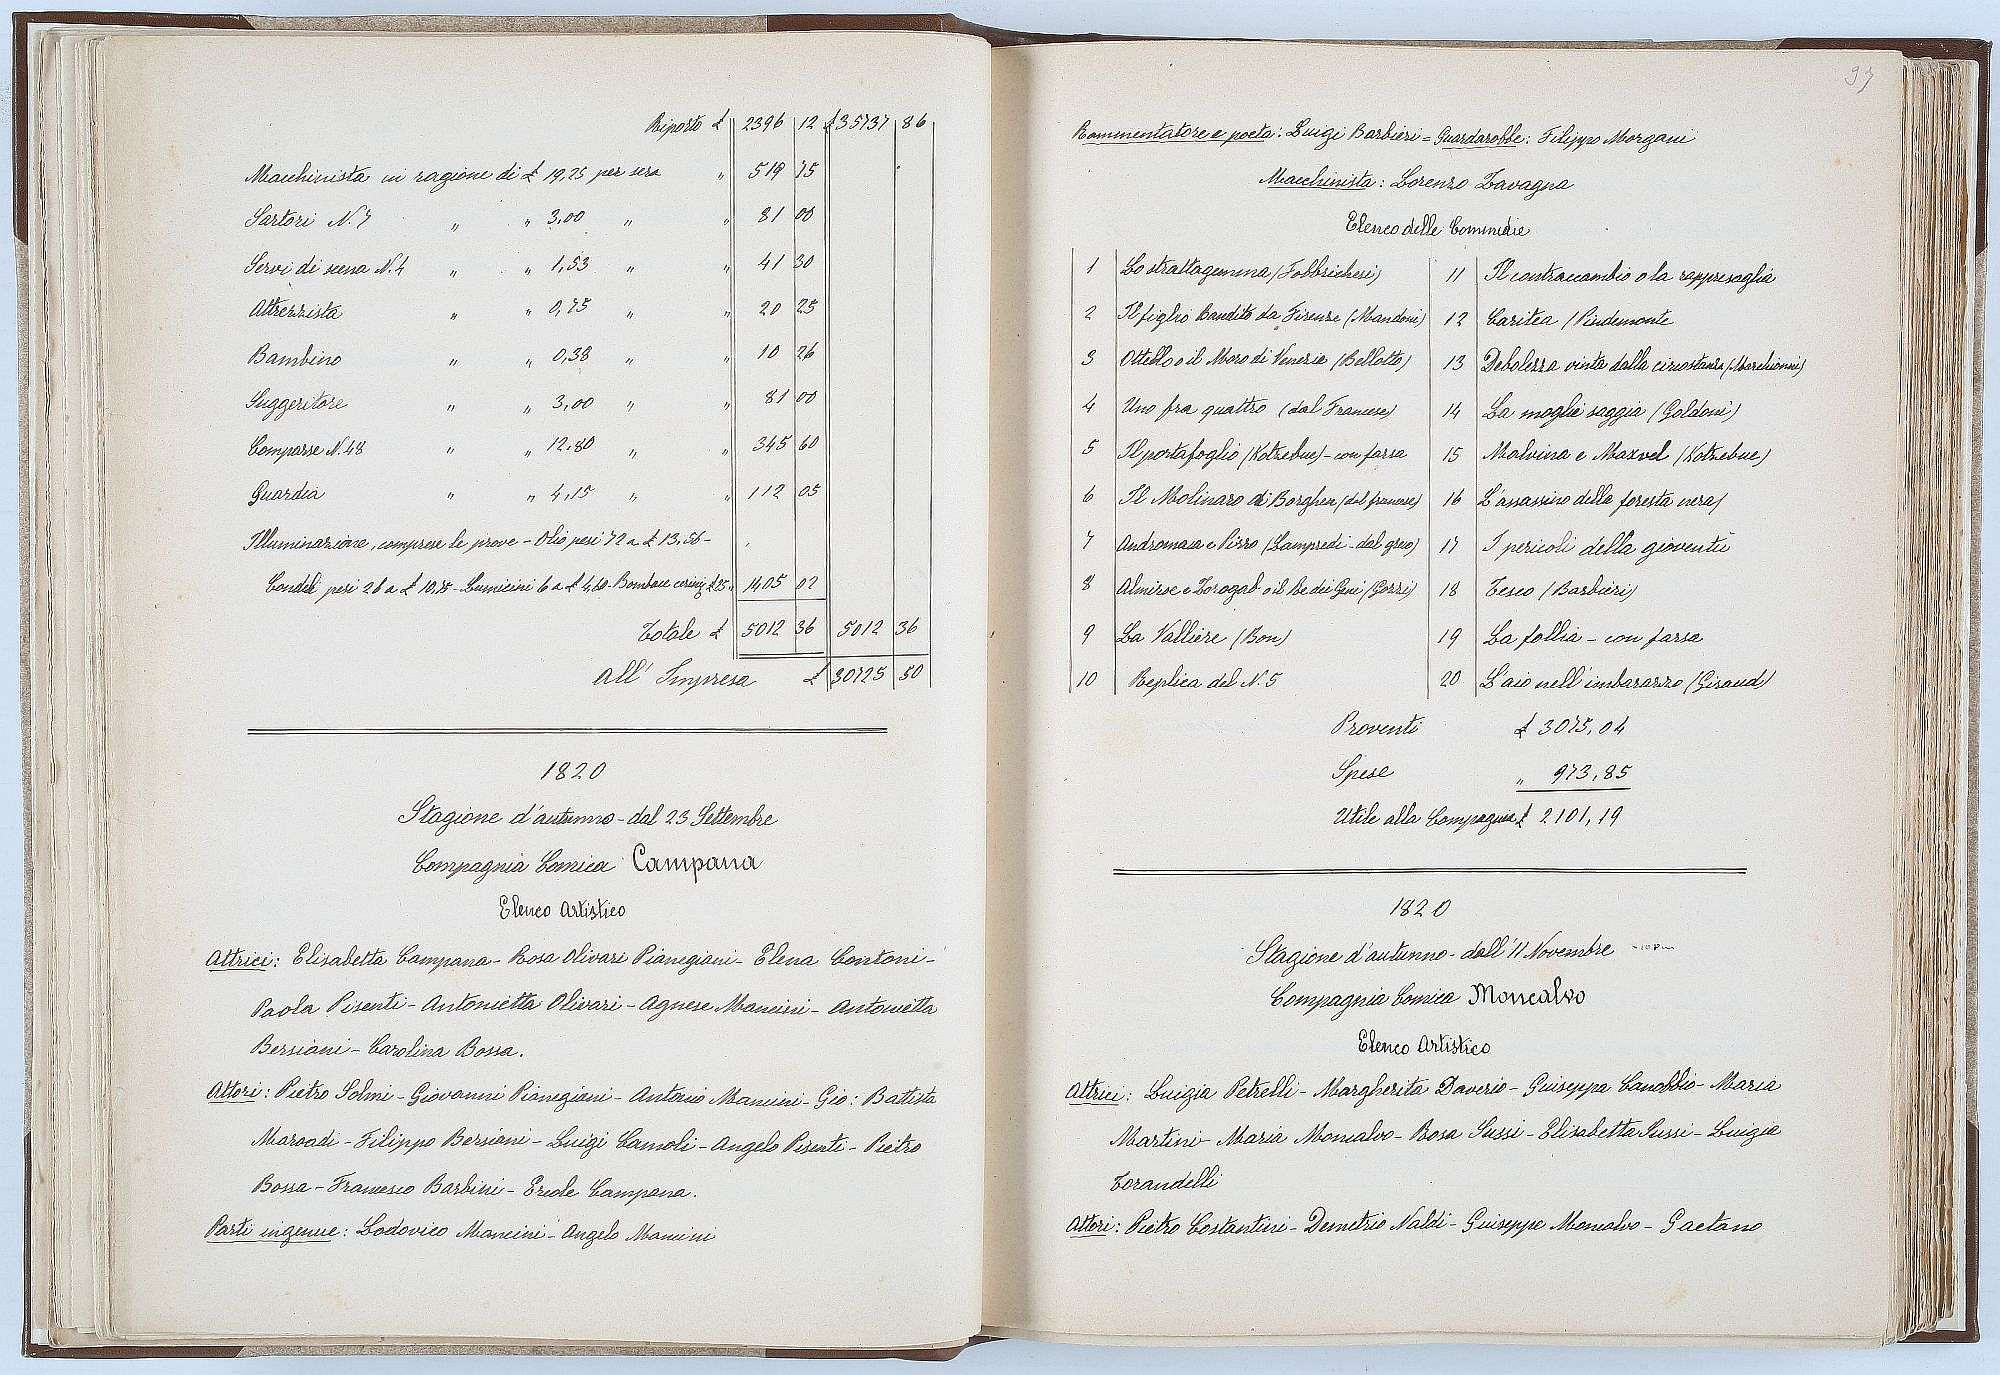 Riporto £ 2396 12 £ 35737 86
Macchinista in ragione di £ 19,25 per sera " 519 75
Sartori N. 7 " " 3,00 " " 81 00
Servi di scena N. 4 " " 1,53 " " 41 30
Attrezzista " " 0,75 " " 20 25
Bambino " " 0,38 " " 10 26
Suggeritore " " 3,00 " " 81 00
Comparse N. 48 " " 12,80 " " 345 60
Guardia " " 4,15 " " 112 05
Illuminazione, comprese le prove - Olio pesi 72 a £ 13,56 -
Candele pesi 26 a £ 10,35 - Lumicini 6 a £ 4,60 - Bombace £ 25 " 1405 02
Totale £ 5012 36 5012 36
All' Impresa £ 30725 50
1820
Stagione d'autunno - dal 23 Settembre
Compagnia Comica Campana
Elenco Artistico
Attrici: Elisabetta Campana - Rosa Olivari Pianegiani - Elena Contoni -
Paola Pisenti - Antonietta Olivari - Agnese Mancini - Antonietta
Bersiani - Carolina Bossa.
Attori: Pietro Solmi - Giovanni Pianegiani - Antonio Mancini - Gio: Battista
Marcadi - Filippo Bersiani - Luigi Camoli - Angelo Pisenti - Pietro
Bossa - Francesco Barbini - Ercole Campana.
Parti ingenue: Lodovico Mancini - Angelo Mancini
97
Rammentatore e poeta: Luigi Barbieri = Guardarobbe: Filippo Morgani
Macchinista: Lorenzo Zavagna
Elenco delle Commedie
1 Lo strattagemma (Fabbrichesi) 11 Il contraccambio o la rappresaglia
2 Il figlio bandito da Firenze (Mandoni) 12 Caritea (Pindemonte
3 Ottello o il Moro di Venezia (Bellotto) 13 Debolezza vinta dalla circostanza (Marchionni)
4 Uno fra quattro (dal Francese) 14 La moglie saggia (Goldoni)
5 Il portafoglio (Kotzebue) - con farsa 15 Malvina e Maxvel (Kotzebue)
6 Il Molinaro di Borghen (dal francese) 16 L'assassino della foresta nera)
7 Andromaca e Pirro (Lampredi - dal greco) 17 I pericoli della gioventù
8 Almiroe e Zorogab o il Re dei Geni (Gozzi) 18 Teseo (Barbieri)
9 La Valliere (Bon) 19 La follia - con farsa
10 Replica del N. 5 20 L'aio nell'imbarazzo (Giraud)
Proventi £ 3075,04
Spese " 973,85
Utile alla Compagnia £ 2101,19
1820
Stagione d'autunno - dall'11 Novembre
Compagnia Comica Moncalvo
Elenco Artistico
Attrici: Luigia Petrelli - Margherita Daverio - Giuseppa Canobbio - Maria
Martini - Maria Moncalvo - Rosa Sussi - Elisabetta Sussi - Luigia
Torandelli
Attori: Pietro Costantini - Demetrio Naldi - Giuseppe Moncalvo - Gaetano